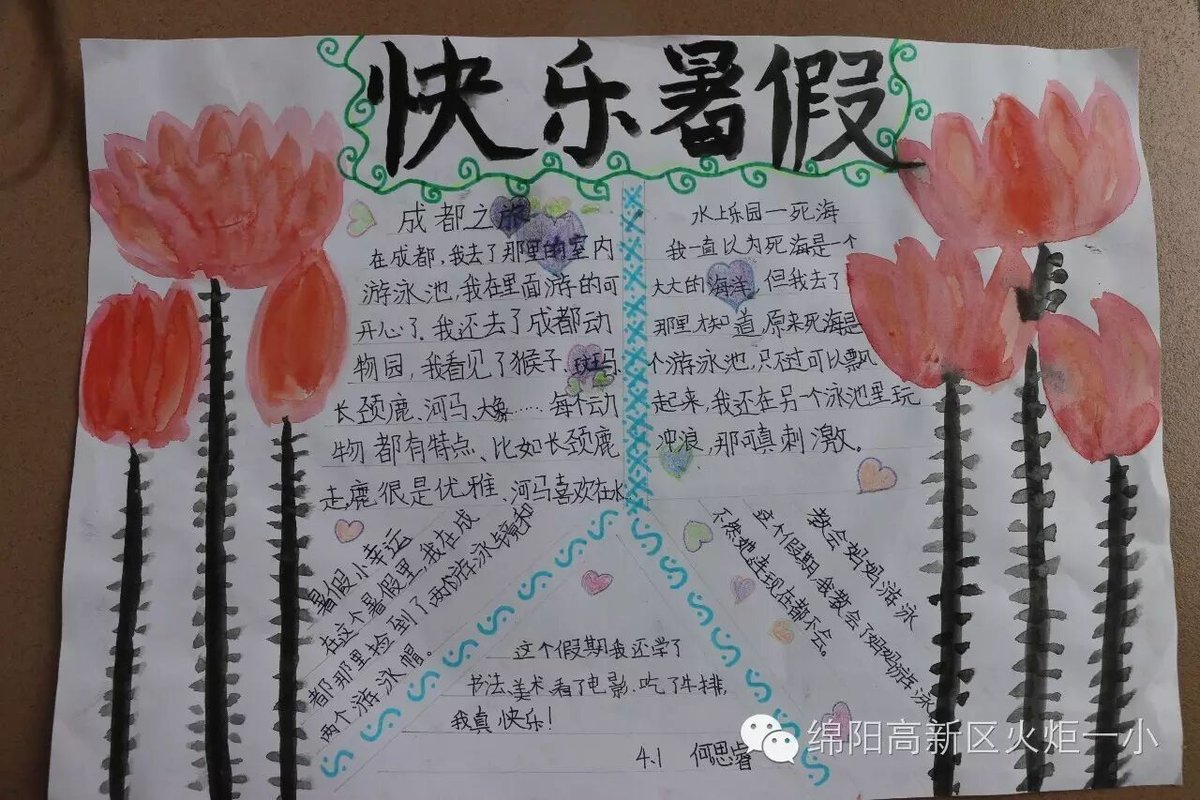 快乐暑假
成都之旅
在成都,我去了那里的室内
游泳池,我在里面游的可
开心了.我还去了成都动
物园,我看见了猴子、斑马、
长颈鹿、河马、大象……每个动
物都有特点、比如长颈鹿
走,鹿很是优雅、河马喜欢在水
水上乐园一死海
我一直以为死海是一个
大大的海洋,但我去了
那里才知道,原来死海是
个游泳池,只不过可以飘
起来,我还在另个泳池里玩
冲浪,那可真刺激。
暑假小幸运
在这个暑假里,我在成
都那里捡到了两个游泳镜和
两个游泳帽。
这个假期我还学了
书法、美术、看了电影、吃了牛排,
我真快乐!
4.1 何思睿
教会妈妈游泳
这个假期,我教会了妈妈游泳
不然她连现在都不会。
绵阳高新区火炬一小